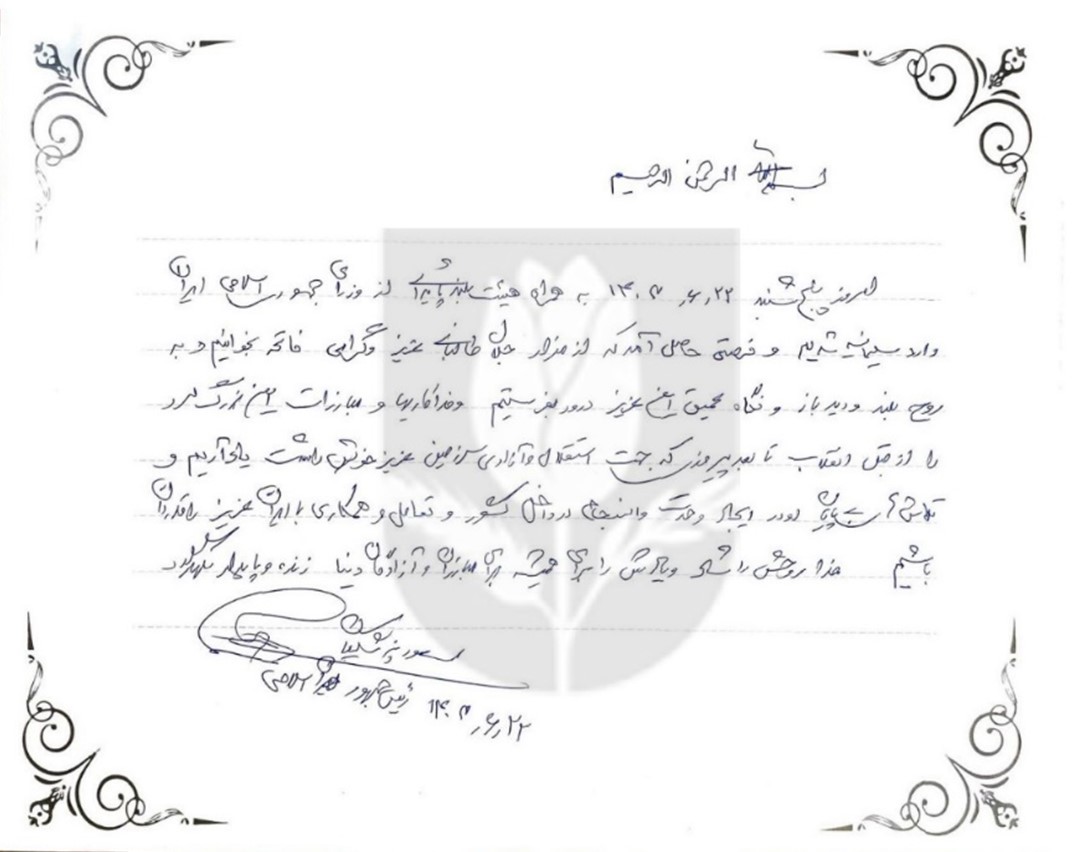 بسم الله الرحمن الرحیم
امروز پنج شنبه ۱۴۰۳,۶,۲۲ به همراه هیئت بلند پایه‌ای از وزرای جمهوری اسلامی ایران
وارد سلیمانیه شدیم و فرصتی حاصل آمد که از مزار جلال طالبانی عزیز و گرامی فاتحه بخوانیم و به
روح بلند و دید باز و نگاه عمیق این عزیز درود بفرستیم و فداکاریها و مبارزات این بزرگ مرد
را از قبل انقلاب تا بعد پیروزی که جهت استقلال و آزادی سرزمین عزیز خویش داشت یاد آریم و
تلاش های بی پایان او در ایجاد وحدت و انسجام در داخل کشور و تعامل و همکاری با ایران عزیز را قدردان
باشیم خدا روحش را شاد و یادش را برای همیشه برای مبارزان و آزادگان دنیا زنده و پایدار نگهدارد
مسعود پزشکیان
رئیس جمهور اسلامی
۱۴۰۳,۶,۲۲